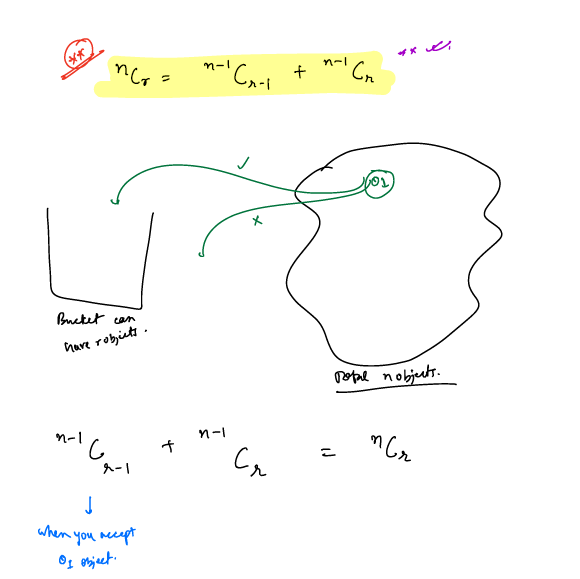 ** ⁿCᵣ = ⁿ⁻¹Cᵣ₋₁ + ⁿ⁻¹Cᵣ **
✓ O1
×
Bucket can
have r objects.
Total n objects.
ⁿ⁻¹Cᵣ₋₁ + ⁿ⁻¹Cᵣ = ⁿCᵣ
↓
when you accept
O1 object.